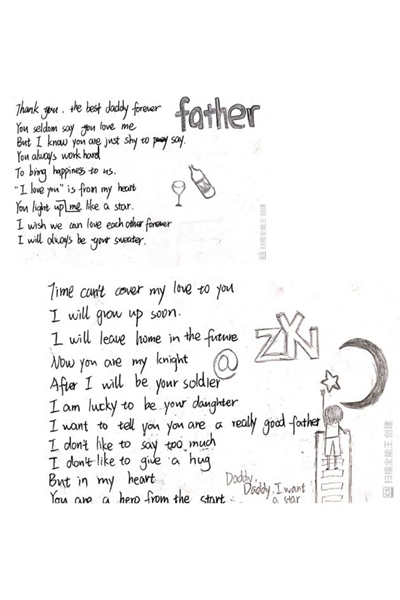 father
Thank you. the best daddy forever
You seldom say you love me
But I know you are just shy to say.
You always work hard
To bring happiness to us.
"I love you" is from my heart
You light up me like a star.
I wish we can love each other forever
I will always be your sweater.
扫描全能王 创建
Time can't cover my love to you
I will grow up soon.
I will leave home in the future
Now you are my knight
@
ZXN
After I will be your soldier
I am lucky to be your daughter
I want to tell you you are a really good father
I don't like to say too much
I don't like to give a hug
But in my heart
You are a hero from the start
Daddy.
Daddy. I want
a star
CS 扫描全能王 创建